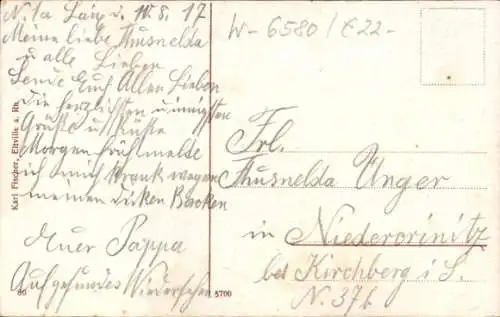 N. 1a Lärz d. 10.8.17
Meine liebe Thusnelda
u alle Lieben
Sende Euch Allen Lieben
die herzlichsten u innigsten
Grüße u Küsse
Morgen früh melde
ich mich krank wegen
meinen dicken Backen
Euer Pappa
Auf gesundes Wiedersehen
W-6580/€22-
Frl.
Thusnelda Unger
in Niedercrinitz
bei Kirchberg i S.
N. 37b
Karl Fischer, Eltville a. Rh.
80
5700